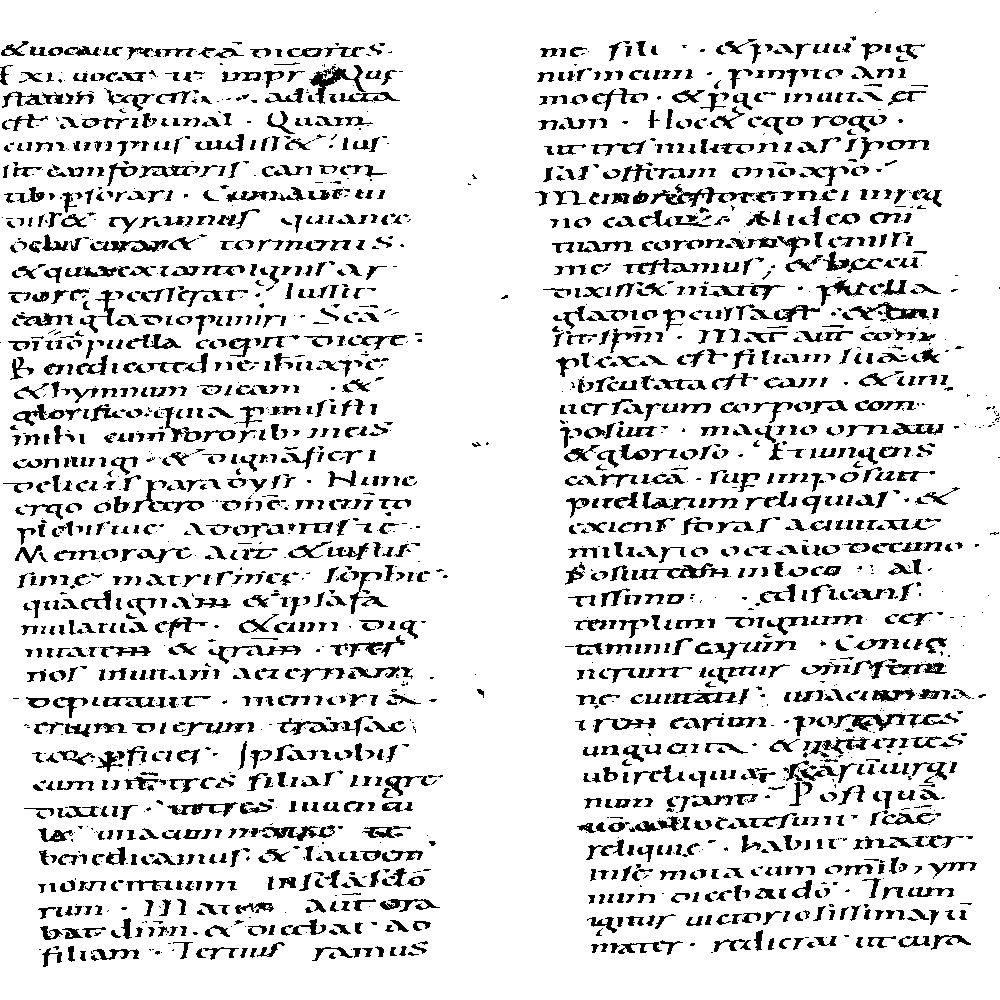 & uocauerunt eā dicentes.
Exi. uocat te impr̄ Qus
statim egressa adducta
est ad tribunal. Quam
cum impius uidiss&. ius
sit eam foratoris canden
tib; pforari. Cum aūt ui
diss& tyrannus quia nec
& quia nec tanto ignis ar
dore pcesserat. Iussit
eam gladio puniri. Scā
dm̄ uō puella coepit dicere:
Benedico te dn̄e ih̄u xpē
& hymnum dicam. &
glorifico. quia p̄misisti
mihi cum sororib; meis
coniungi. & dignā fieri
deliciis paradysi. Nunc
ergo obsecro dn̄e. mem̄to
plebis tuę adorantis te.
Memorare aūt & iustis
simę matris meę sophię.
quae dignam & ipsa fa
mulatua est. & cum dig
nitatem & grām tres
nos inuitam aeternam
deputauit. memoria
trium dierum transac
ta pficies. Ipsa nobis
cum int̄ tres filias ingre
diatur. ut tres iuuencu
lę una cum matre te
benedicamus. & laudem
nomen tuum in sc̄la sc̄lo
rum. Mater aūt ora
bat dn̄m. & dicebat ad
filiam. Tertius ramus
me fili. & parui pig
nus meum. pinpto ani
mo esto. & p̄ge in uitā &
nam. Hoc & ego rogo.
ut tres militonias spon
sas offeram dnō xpō.
Memores estote mei in reg
no caelo Ideo eni
tuam coronam plenissi
me testamus, & haec cū
dixiss& mater. puella
gladio pcussa est. &
sit spm̄. Mat̄ aūt com
plexa est filiam suā &
obsculata est eam. & uni
uersarum corpora com
posuit. magno ornatu
& glorioso. Et iungens
carrucā. sup imposuit
puellarum reliquias. &
exiens foras a ciuitate
miliario octauo decimo.
Posuit eas in loco al
tissimo. edificans
templum dignum cer
taminis earum. Conue
nerunt igitur om̄s femi
nę ciuitatis. una cum ma
tron earum. portantes
unguenta. & ingerentes
ubi reliquiae scārū uirgi
num erant. Post quā
uō collocate sunt scāe
reliquię. habuit mater
ipsę mota cum om̄ib; ym
num dicebat dō. Trium
igitur uictoriosissimarū
mater. redierat ut cura